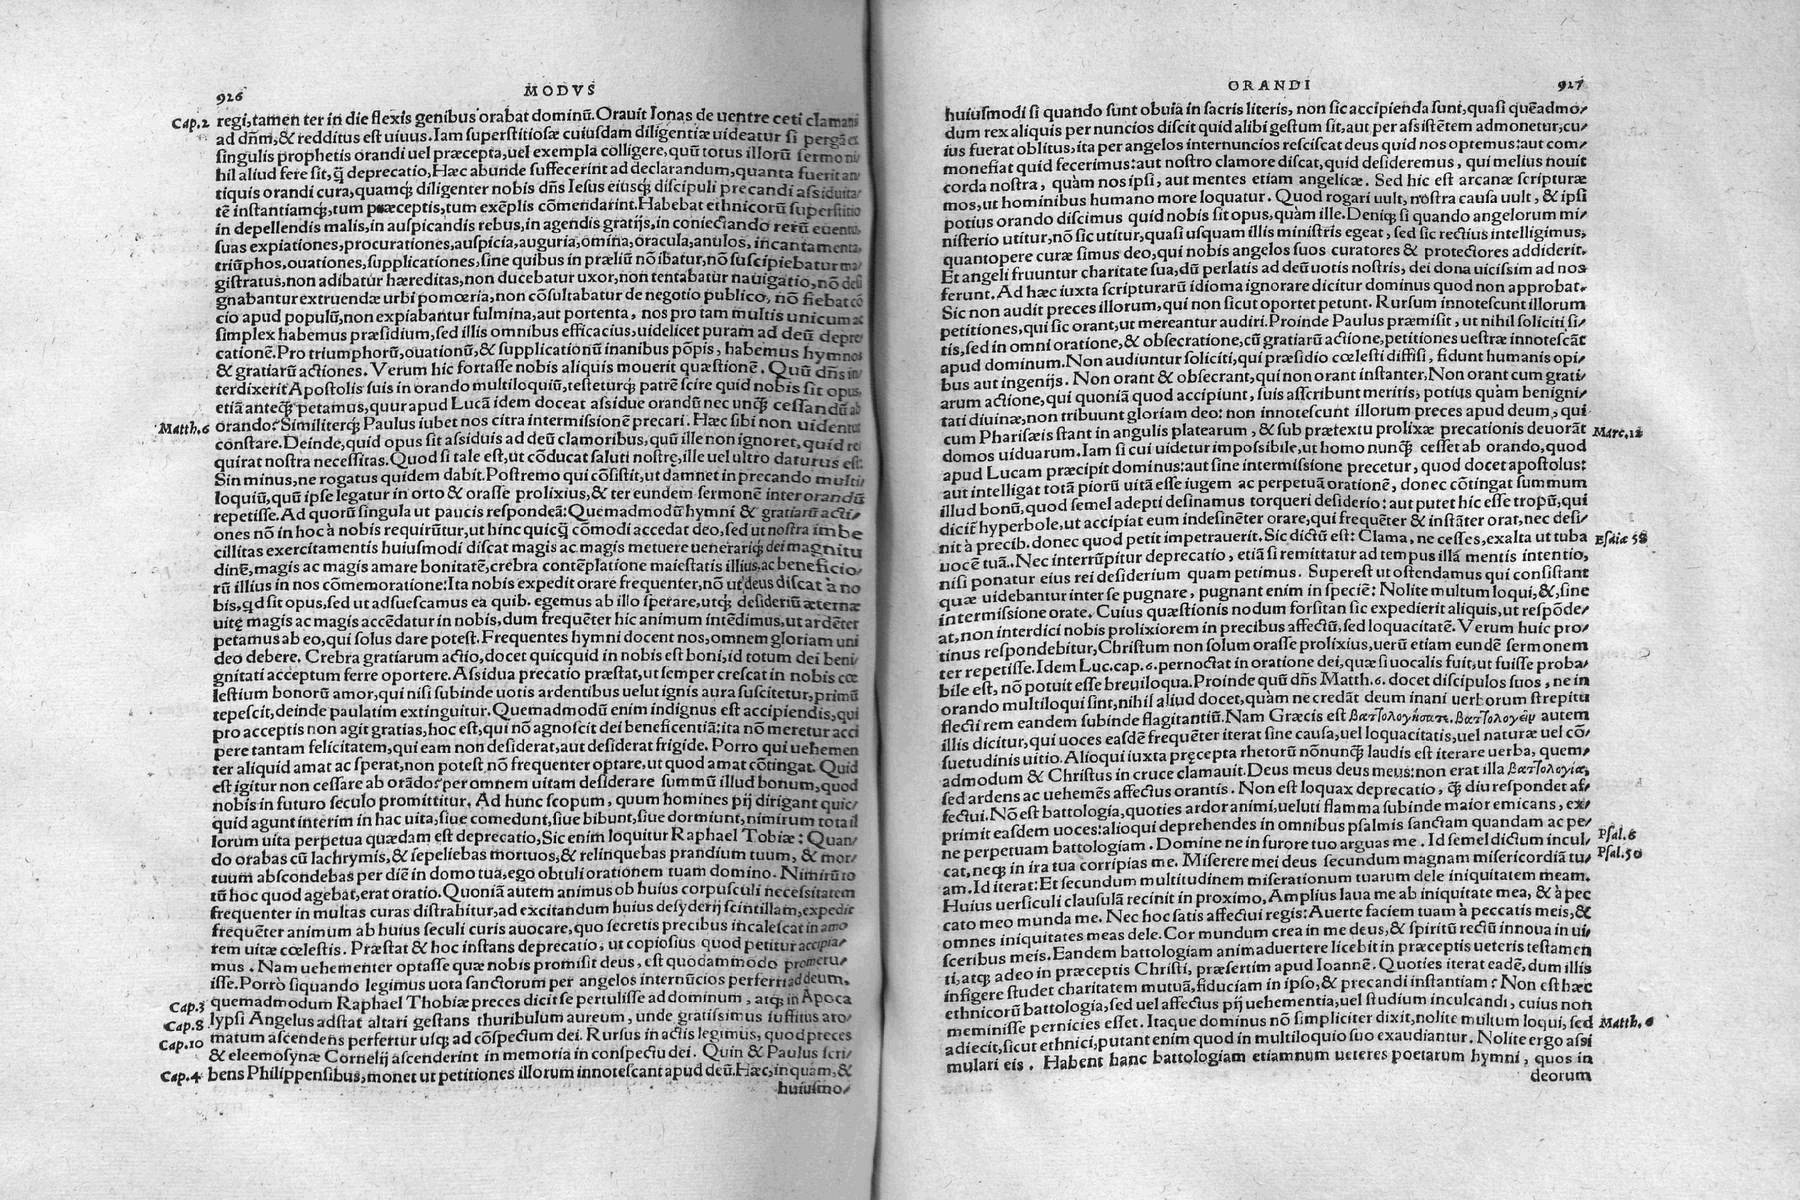 926
MODVS
Cap.2 regi, tamen ter in die flexis genibus orabat dominũ. Orauit Ionas de uentre ceti clamans
ad dñm, & redditus est uiuus. Iam superstitiosæ cuiusdam diligentiæ uideatur si pergã ex
singulis prophetis orandi uel præcepta, uel exempla colligere, quũ totus illorũ sermo ni/
hil aliud fere sit, q̃ deprecatio, Hæc abunde suffecerint ad declarandum, quanta fuerit an/
tiquis orandi cura, quamq; diligenter nobis dñs Iesus eiusq; discipuli precandi assiduita/
tẽ instantiamq;, tum præceptis, tum exẽplis cõmendarint. Habebat ethnicorũ superstitio
in depellendis malis, in auspicandis rebus, in agendis gratijs, in coniectando rerũ euentu,
suas expiationes, procurationes, auspicia, auguria, omina, oracula, anulos, incantamenta,
triũphos, ouationes, supplicationes, sine quibus in præliũ nõ ibatur, nõ suscipiebatur ma/
gistratus, non adibatur hæreditas, non ducebatur uxor, non tentabatur nauigatio, nõ desi
gnabantur extruendæ urbi pomœria, non cõsultabatur de negotio publico, nõ fiebat cõ
cio apud populũ, non expiabantur fulmina, aut portenta, nos pro tam multis unicum ac
simplex habemus præsidium, sed illis omnibus efficacius, uidelicet puram ad deũ depre/
cationẽ. Pro triumphorũ, ouationũ, & supplicationũ inanibus põpis, habemus hymnos
& gratiarũ actiones. Verum hic fortasse nobis aliquis mouerit quæstionẽ. Quũ dñs in/
terdixerit Apostolis suis in orando multiloquiũ, testeturq; patrẽ scire quid nobis sit opus,
etiã anteq̃ petamus, quur apud Lucã idem doceat assidue orandũ nec unq̃ cessandũ ab
Matth.6 orando? Similiterq; Paulus iubet nos citra intermissionẽ precari. Hæc sibi non uidentur
constare. Deinde, quid opus sit assiduis ad deũ clamoribus, quũ ille non ignoret, quid re/
quirat nostra necessitas. Quod si tale est, ut cõducat saluti nostrę, ille uel ultro daturus est:
Sin minus, ne rogatus quidem dabit. Postremo qui cõsistit, ut damnet in precando multi/
loquiũ, quũ ipse legatur in orto & orasse prolixius, & ter eundem sermonẽ inter orandũ
repetisse. Ad quorũ singula ut paucis respondeã: Quemadmodũ hymni & gratiarũ acti/
ones nõ in hoc à nobis requirũtur, ut hinc quicq̃ cõmodi accedat deo, sed ut nostra imbe
cillitas exercitamentis huiusmodi discat magis ac magis metuere uenerariq; dei magnitu
dinẽ, magis ac magis amare bonitatẽ, crebra contẽplatione maiestatis illius, ac beneficio/
rũ illius in nos cõmemoratione: Ita nobis expedit orare frequenter, nõ ut deus discat à no
bis, qd sit opus, sed ut adsuescamus ea quib. egemus ab illo sperare, utq; desideriũ æternæ
uitę magis ac magis accẽdatur in nobis, dum frequẽter hic animum intẽdimus, ut ardẽter
petamus ab eo, qui solus dare potest. Frequentes hymni docent nos, omnem gloriam uni
deo debere. Crebra gratiarum actio, docet quicquid in nobis est boni, id totum dei beni/
gnitati acceptum ferre oportere. Assidua precatio præstat, ut semper crescat in nobis cœ
lestium bonorũ amor, qui nisi subinde uotis ardentibus uelut ignis aura suscitetur, primũ
tepescit, deinde paulatim extinguitur. Quemadmodũ enim indignus est accipiendis, qui
pro acceptis non agit gratias, hoc est, qui nõ agnoscit dei beneficentiã: ita nõ meretur acci
pere tantam felicitatem, qui eam non desiderat, aut desiderat frigide. Porro qui uehemen
ter aliquid amat ac sperat, non potest nõ frequenter optare, ut quod amat cõtingat. Quid
est igitur non cessare ab orãdo? per omnem uitam desiderare summũ illud bonum, quod
nobis in futuro seculo promittitur. Ad hunc scopum, quum homines pij dirigant quic/
quid agunt interim in hac uita, siue comedunt, siue bibunt, siue dormiunt, nimirum tota il
lorum uita perpetua quædam est deprecatio, Sic enim loquitur Raphael Tobiæ: Quan/
do orabas cũ lachrymis, & sepeliebas mortuos, & relinquebas prandium tuum, & mor/
tuum abscondebas per diẽ in domo tua, ego obtuli orationem tuam domino. Nimirũ to
tũ hoc quod agebat, erat oratio. Quoniã autem animus ob huius corpusculi necessitatem
frequenter in multas curas distrahitur, ad excitandum huius desyderij scintillam, expedit
frequẽter animum ab huius seculi curis auocare, quo secretis precibus incalescat in amo
rem uitæ cœlestis. Præstat & hoc instans deprecatio, ut copiosius quod petitur accipia/
mus. Nam uehementer optasse quæ nobis promisit deus, est quodammodo prometu/
isse. Porrò siquando legimus uota sanctorum per angelos internũcios perferri ad deum,
Cap.3 quemadmodum Raphael Thobiæ preces dicit se pertulisse ad dominum, atq; in Apoca
Cap.8 lypsi Angelus adstat altari gestans thuribulum aureum, unde gratissimus suffitus aro/
Cap.10 matum ascendens perfertur usq; ad cõspectum dei. Rursus in actis legimus, quod preces
& eleemosynæ Cornelij ascenderint in memoria in conspectu dei. Quin & Paulus scri/
Cap.4 bens Philippensibus, monet ut petitiones illorum innotescant apud deũ. Hæc, inquam, &
huiusmo/
ORANDI
927
huiusmodi si quando sunt obuia in sacris literis, non sic accipienda sunt, quasi quẽadmo/
dum rex aliquis per nuncios discit quid alibi gestum sit, aut per assistẽtem admonetur, cu/
ius fuerat oblitus, ita per angelos internuncios resciscat deus quid nos optemus: aut com/
monefiat quid fecerimus: aut nostro clamore discat, quid desideremus, qui melius nouit
corda nostra, quàm nos ipsi, aut mentes etiam angelicæ. Sed hic est arcanæ scripturæ
mos, ut hominibus humano more loquatur. Quod rogari uult, nostra causa uult, & ipsi
potius orando discimus quid nobis sit opus, quàm ille. Deniq; si quando angelorum mi/
nisterio utitur, nõ sic utitur, quasi usquam illis ministris egeat, sed sic rectius intelligimus,
quantopere curæ simus deo, qui nobis angelos suos curatores & protectores addiderit.
Et angeli fruuntur charitate sua, dũ perlatis ad deũ uotis nostris, dei dona uicissim ad nos
ferunt. Ad hæc iuxta scripturarũ idioma ignorare dicitur dominus quod non approbat.
Sic non audit preces illorum, qui non sicut oportet petunt. Rursum innotescunt illorum
petitiones, qui sic orant, ut mereantur audiri. Proinde Paulus præmisit, ut nihil soliciti si/
tis, sed in omni oratione, & obsecratione, cũ gratiarũ actione, petitiones uestræ innotescãt
apud dominum. Non audiuntur soliciti, qui præsidio cœlesti diffisi, fidunt humanis opi/
bus aut ingenijs. Non orant & obsecrant, qui non orant instanter, Non orant cum grati/
arum actione, qui quoniã quod accipiunt, suis asscribunt meritis, potius quàm benigni/
tati diuinæ, non tribuunt gloriam deo: non innotescunt illorum preces apud deum, qui
cum Pharisæis stant in angulis platearum, & sub prætextu prolixæ precationis deuorãt Marc.12
domos uiduarum. Iam si cui uidetur impossibile, ut homo nunq̃ cesset ab orando, quod
apud Lucam præcipit dominus: aut sine intermissione precetur, quod docet apostolus:
aut intelligat totã piorũ uitã esse iugem ac perpetuã orationẽ, donec cõtingat summum
illud bonũ, quod semel adepti desinamus torqueri desiderio: aut putet hic esse tropũ, qui
dicit̃ hyperbole, ut accipiat eum indesinẽter orare, qui frequẽter & instãter orat, nec desi/
nit à precib. donec quod petit impetrauerit. Sic dictũ est: Clama, ne cesses, exalta ut tuba Esaiæ 58
uocẽ tuã. Nec interrũpitur deprecatio, etiã si remittatur ad tempus illã mentis intentio,
nisi ponatur eius rei desiderium quam petimus. Superest ut ostendamus qui consistant
quæ uidebantur inter se pugnare, pugnant enim in speciẽ: Nolite multum loqui, &, sine
intermissione orate. Cuius quæstionis nodum forsitan sic expedierit aliquis, ut respõde/
at, non interdici nobis prolixiorem in precibus affectũ, sed loquacitatẽ. Verum huic pro/
tinus respondebitur, Christum non solum orasse prolixius, uerũ etiam eundẽ sermonem
ter repetisse. Idem Luc. cap. 6. pernoctat in oratione dei, quæ si uocalis fuit, ut fuisse proba/
bile est, nõ potuit esse breuiloqua. Proinde quũ dñs Matth.6. docet discipulos suos, ne in
orando multiloqui sint, nihil aliud docet, quàm ne credãt deum inani uerborum strepitu
flecti rem eandem subinde flagitantiũ. Nam Græcis est βαττολογήσατε. βαττολογεῖν autem
illis dicitur, qui uoces easdẽ frequẽter iterat sine causa, uel loquacitatis, uel naturæ uel cõ/
suetudinis uitio. Alioqui iuxta pręcepta rhetorũ nõnunq̃ laudis est iterare uerba, quem/
admodum & Christus in cruce clamauit. Deus meus deus meus: non erat illa βαττολογία,
sed ardens ac uehemẽs affectus orantis. Non est loquax deprecatio, q̃ diu respondet af/
fectui. Nõ est battologia, quoties ardor animi, ueluti flamma subinde maior emicans, ex/
primit easdem uoces: alioqui deprehendes in omnibus psalmis sanctam quandam ac pe/
ne perpetuam battologiam. Domine ne in furore tuo arguas me. Id semel dictum incul/ Psal.6
cat, neq; in ira tua corripias me. Miserere mei deus secundum magnam misericordiã tu/ Psal.50
am. Id iterat: Et secundum multitudinem miserationum tuarum dele iniquitatem meam.
Huius uersiculi clausulã recinit in proximo, Amplius laua me ab iniquitate mea, & à pec
cato meo munda me. Nec hoc satis affectui regis: Auerte faciem tuam à peccatis meis, &
omnes iniquitates meas dele. Cor mundum crea in me deus, & spiritũ rectũ innoua in ui/
sceribus meis. Eandem battologiam animaduertere licebit in præceptis ueteris testamen
ti, atq; adeo in præceptis Christi, præsertim apud Ioannẽ. Quoties iterat eadẽ, dum illis
infigere studet charitatem mutuã, fiduciam in ipso, & precandi instantiam? Non est hæc
ethnicorũ battologia, sed uel affectus pij uehementia, uel studium inculcandi, cuius non
meminisse pernicies esset. Itaque dominus nõ simpliciter dixit, nolite multum loqui, sed Matth.6
adiecit, sicut ethnici, putant enim quod in multiloquio suo exaudiantur. Nolite ergo assi
mulari eis. Habent hanc battologiam etiamnum ueteres poetarum hymni, quos in
deorum